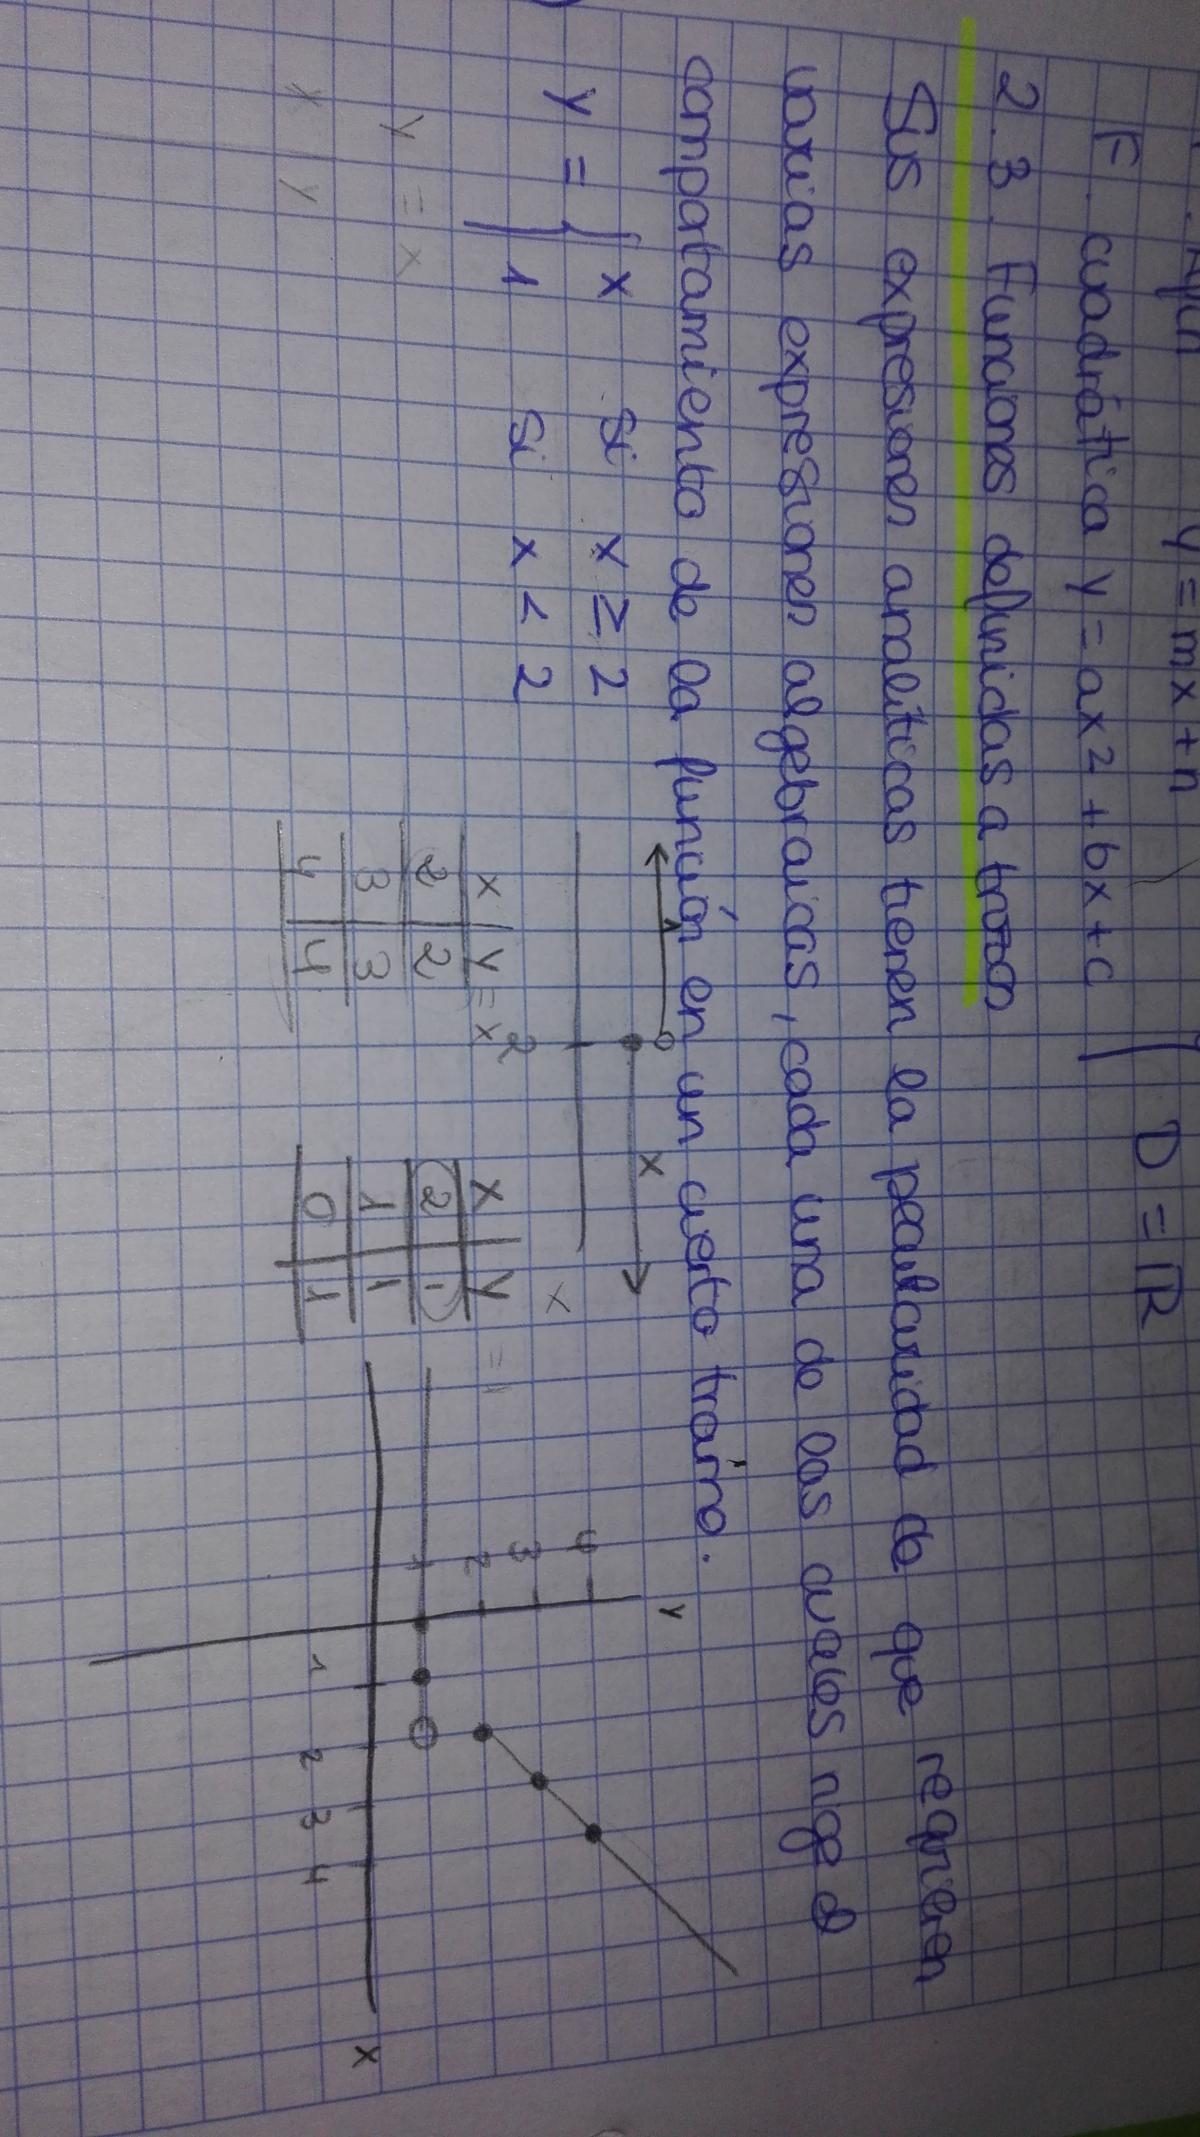 y = mx + n
F. cuadrática y = ax² + bx + c
D = ℝ
2.3. Funciones definidas a trozos
Sus expresiones analíticas tienen la peculiaridad de que requieren
varias expresiones algebraicas, cada una de las cuales rige el
comportamiento de la función en un cierto tramo.
y = { x si x ≥ 2
1 si x < 2
y = x
x y
1 x
2 x
x | y = x
2 | 2
3 | 3
4 | 4
x | y = 1
2 | 1
1 | 1
0 | 1
y
4
3
2
1
1 2 3 4
x